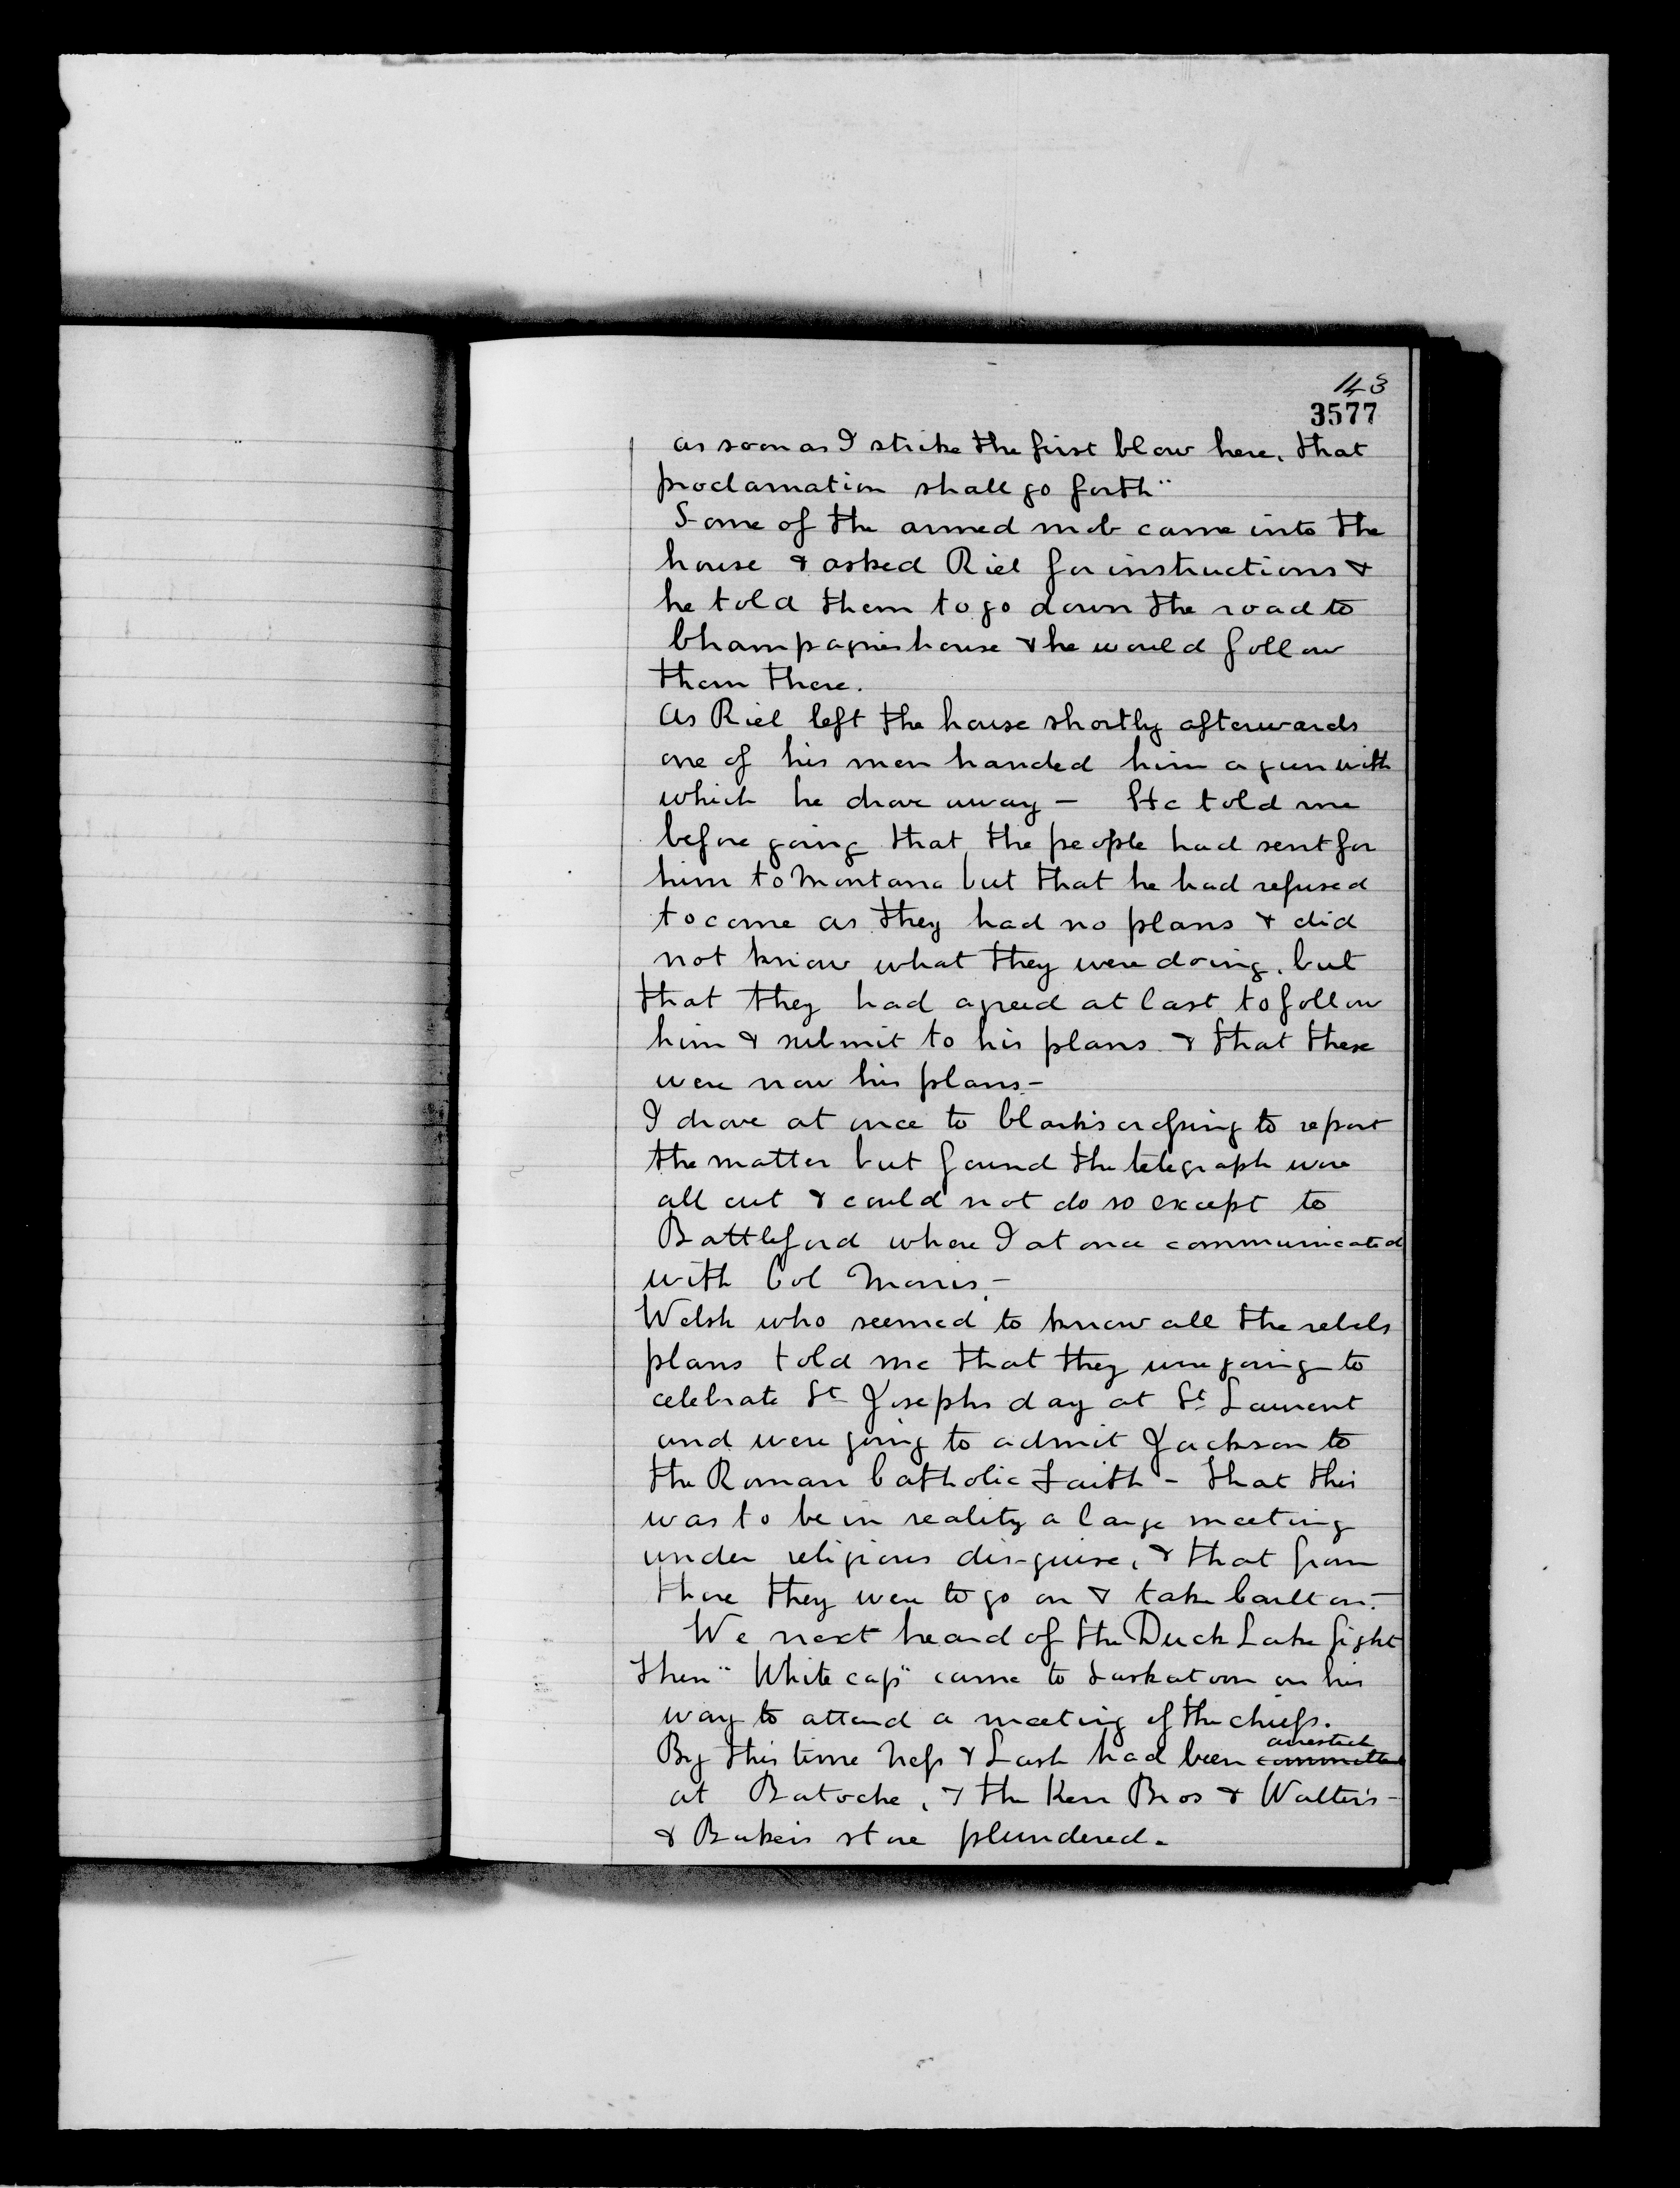 143
3577
as soon as I strike the first blow here, that
proclamation shall go forth"
Some of the armed mob came into the
house & asked Riel for instructions &
he told them to go down the road to
Champagnes house & he would follow
them there.
As Riel left the house shortly afterwards
one of his men handed him a gun with
which he drove away — He told me
before going that the people had sent for
him to Montana but that he had refused
to come as they had no plans & did
not know what they were doing, but
that they had agreed at last to follow
him & submit to his plans & that these
were now his plans —
I drove at once to Clarks crossing to report
the matter but found the telegraph were
all cut & could not do so except to
Battleford where I at once communicated
with Col Morris —
Welsh who seemed to know all the rebels
plans told me that they were going to
celebrate St Josephs day at St Laurent
and were going to admit Jackson to
the Roman Catholic Faith — that this
was to be in reality a large meeting
under religious dis-guise, & that from
there they were to go on & take Carlton. —
We next heard of the Duck Lake fight
then "White cap" came to Saskatoon on his
way to attend a meeting of the chiefs.
arrested
By this time Ness & Lash had been committed
at Batoche, & the Kerr Bros & Walter's —
& Bakers store plundered.